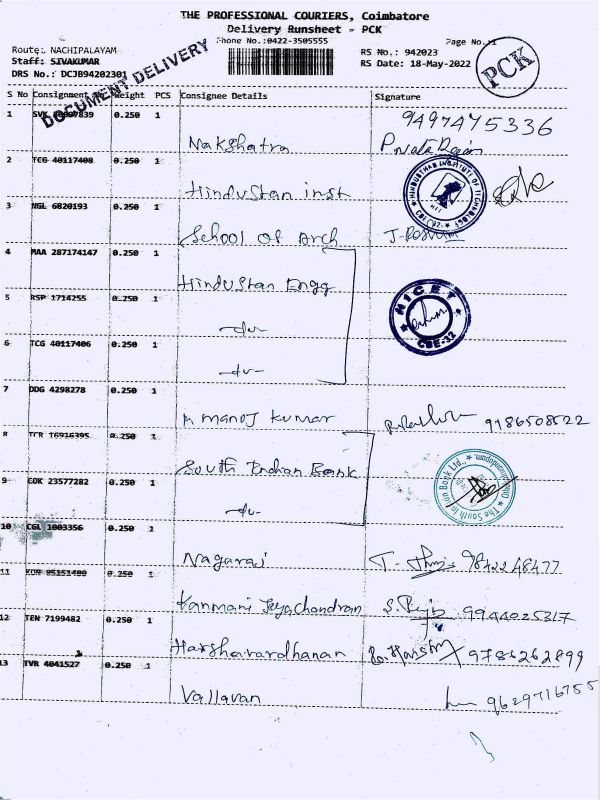 THE PROFESSIONAL COURIERS, Coimbatore
Delivery Runsheet - PCK
Phone No.:0422-3505555
Page No.:1
Route: NACHIPALAYAM
Staff: SIVAKUMAR
DRS No.: DCJB94202301
RS No.: 942023
RS Date: 18-May-2022
DOCUMENT DELIVERY
PCK
S No Consignment Weight PCS Consignee Details Signature
1 SVK 0.250 1 Nakshatra 9497475336
2 TCG 40117408 0.250 1 Hindustan inst
HINDUSTHAN INSTITUTE OF TECHNOLOGY
3 NGL 6820193 0.250 1 School of Arch
4 MAA 287174147 0.250 1 Hindustan Engg
5 RSP 1714255 0.250 1 -do-
HICET
CBE-32
6 TCG 40117406 0.250 1 -do-
7 DDG 4298278 0.250 1 manoj kumar 9186508522
8 TCR 16916395 0.250 1 South Indian Bank
The South Indian Bank Ltd.,
9 COK 23577282 0.250 1 -do-
10 CGL 1003356 0.250 1 Nagaraj 9842248477
11 0.250 1 Kanmani Jeyachandran 9944025317
12 TEN 7199482 0.250 1 Harshavardhanan 9786262899
13 TVR 4041527 0.250 1 Vallavan 9629716755